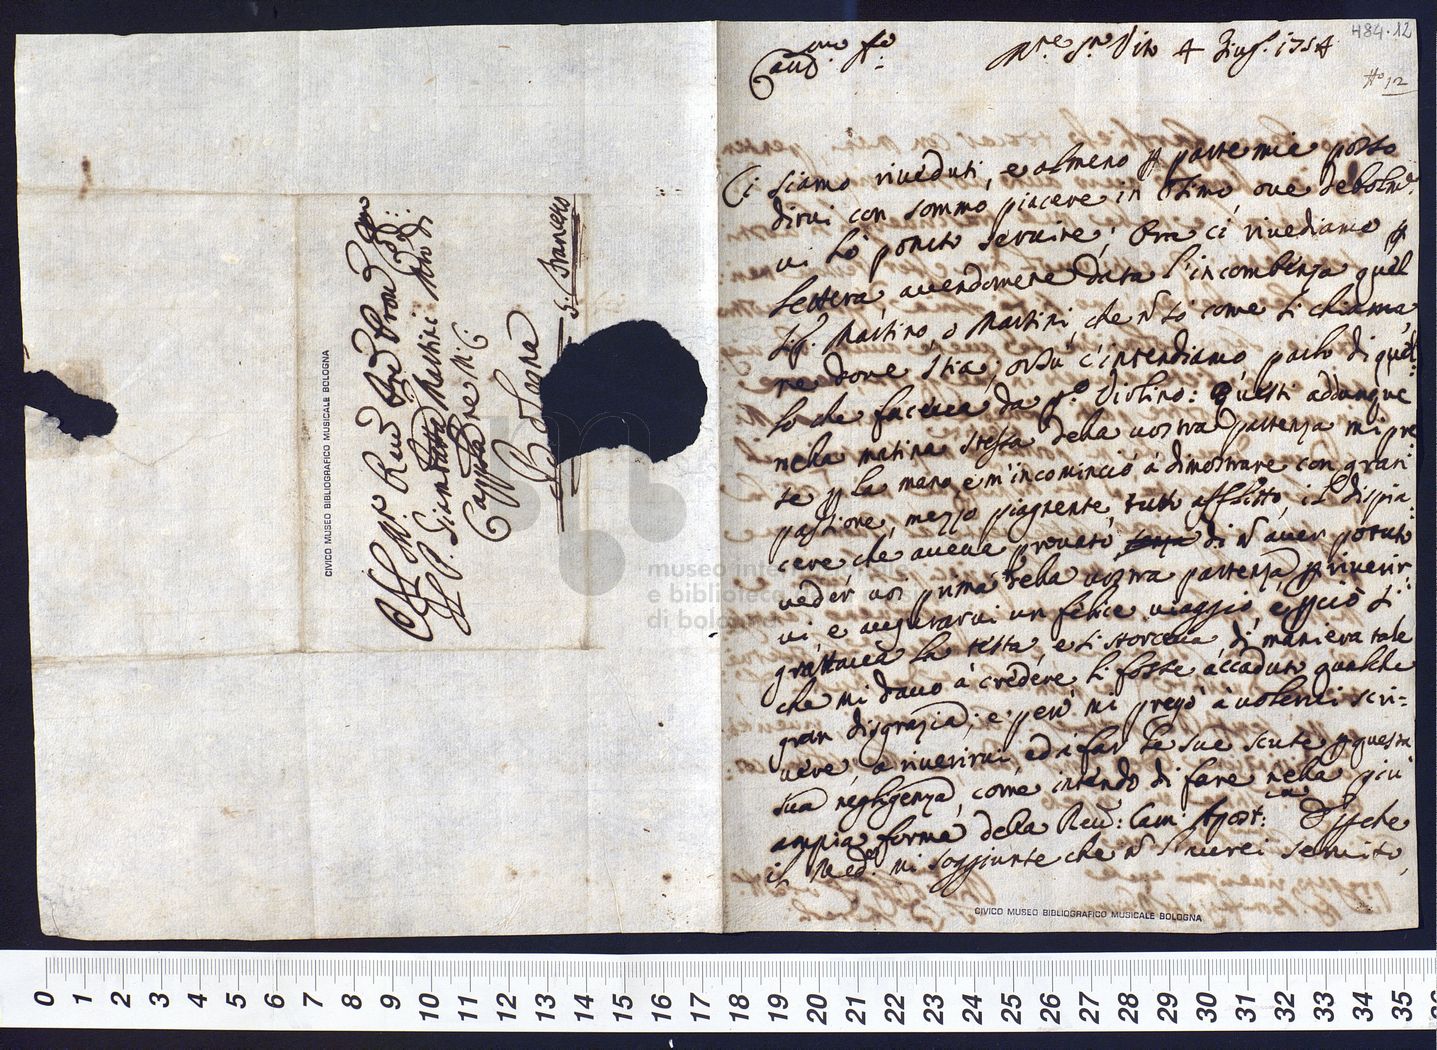 484.12
N° 12
Cariss.mo fr.
Mte Sn Vito 4 Giug. 1754
Ci siamo riveduti, e almeno p parte mie posso
dirvi con sommo piacere in Osimo, ove debolm.te
vi hò potuto servire; Ora ci rivediamo p
lettera, avendomene data l'incombenza quel
Sig. Martino, o Martini, che ñ sò come si chiama,
ne dove stia; orsù c'intendiamo, parlo di quel-
lo che faceva da p.o Violino: Questi addunque
nella matina stessa della vostra partenza mi pre
se p la mano, e m'incominciò à dimostrare con gran
passione, mezzo piagnente, tutto afflitto, il dispia
cere che aveva provato di ñ aver potuto
veder voi prima della vostra partenza p riverir
vi e augurarvi un felice viaggio, e p ciò si
grattava la testa, e si storceva di maniera tale
che mi davo à credere li fosse accaduto qualche
gran disgrazia; e però mi pregò à volervi scri=
vere, a riverirvi, ed à far le sue scuse p questa
sua negligenza, come intendo di fare nella più
ampia forma della Rev: Cam: Apost:
il Med.o mi soggiunse che ñ l'averei servito,
CIVICO MUSEO BIBLIOGRAFICO MUSICALE BOLOGNA
Al M. Rev.
Il P. Giambatta Martini
Bologna
S. Francesco
CIVICO MUSEO BIBLIOGRAFICO MUSICALE BOLOGNA
museo internazionale
e biblioteca della musica
di bologna
0 1 2 3 4 5 6 7 8 9 10 11 12 13 14 15 16 17 18 19 20 21 22 23 24 25 26 27 28 29 30 31 32 33 34 35